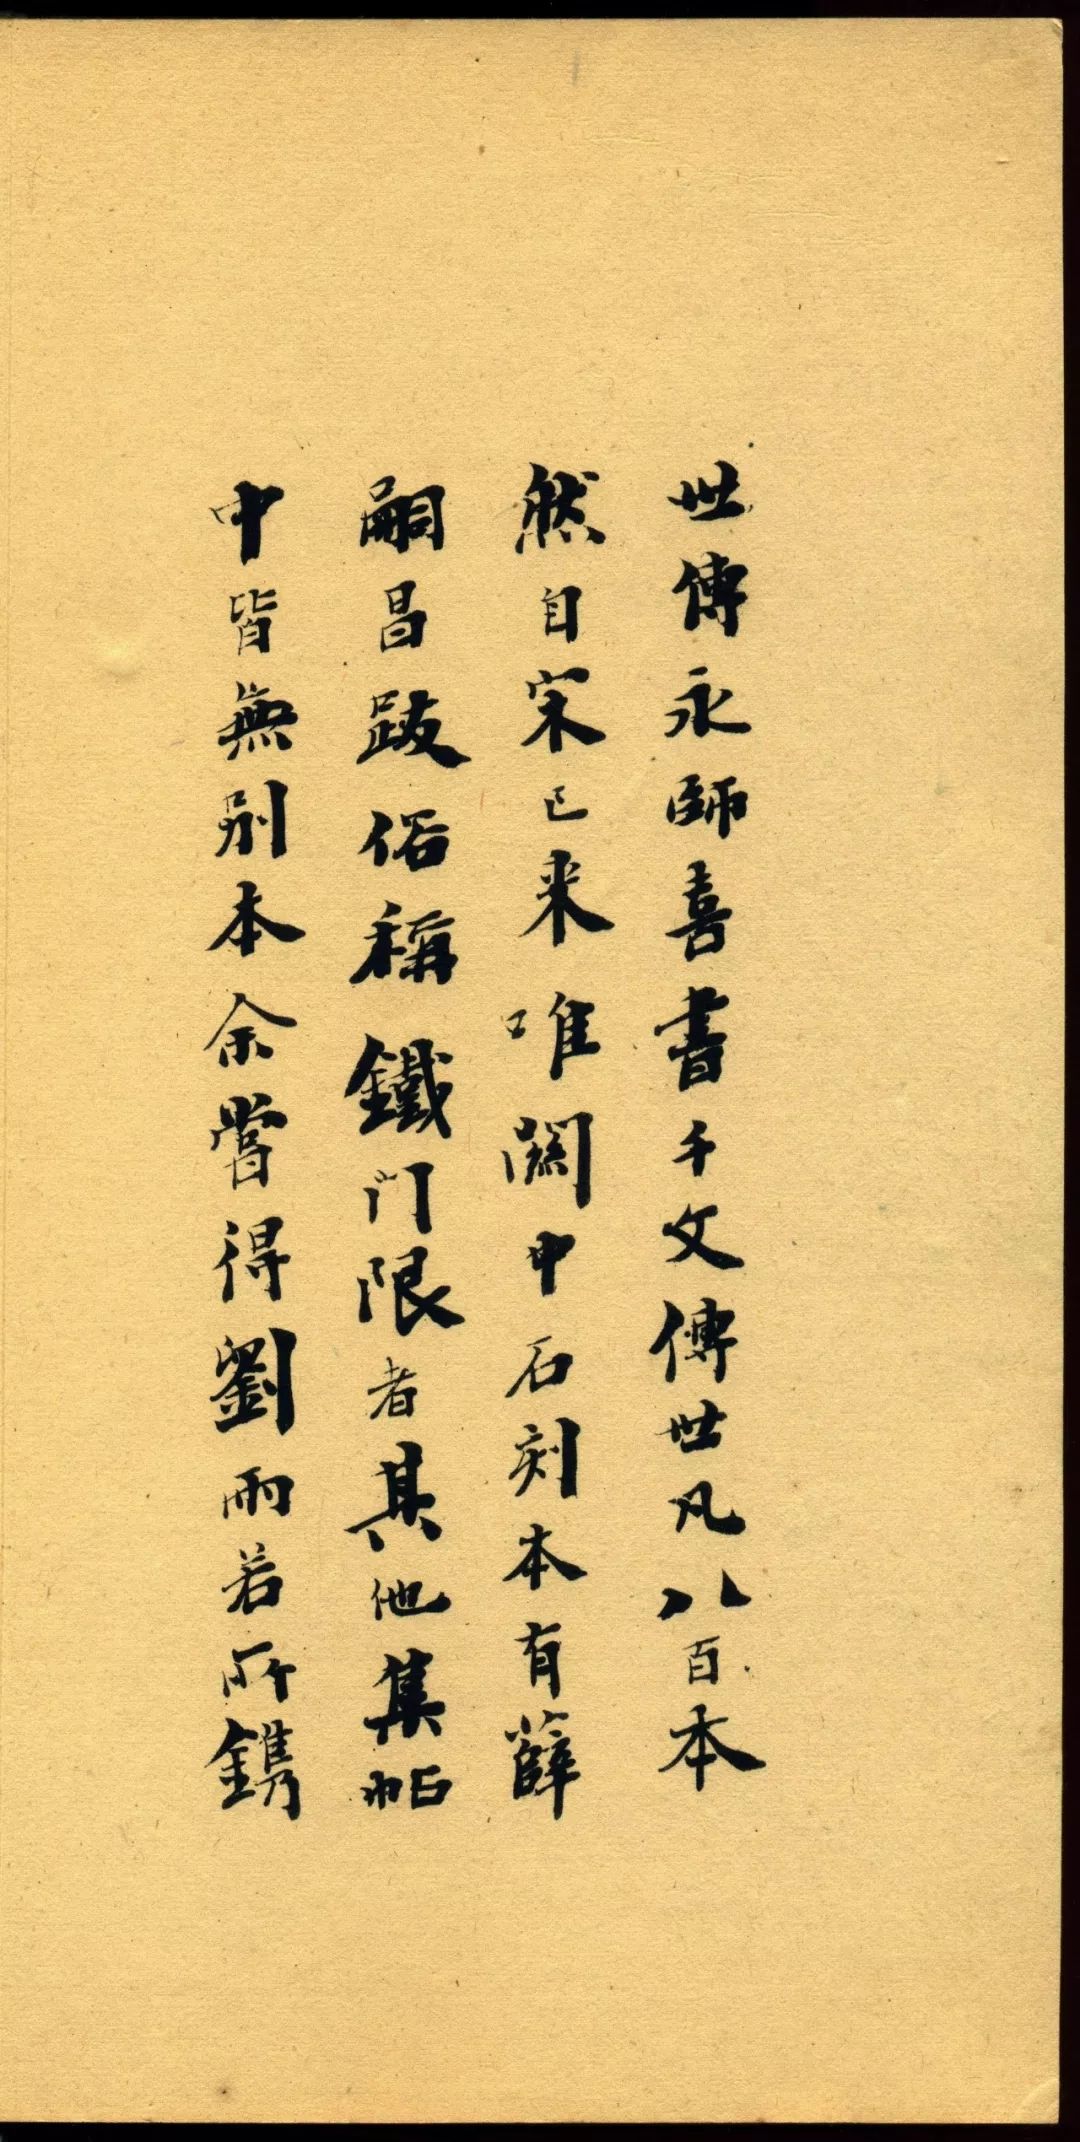 世傳永師喜書千文傳世凡八百本
然自宋已来唯關中石刻本有薛
嗣昌跋俗稱鐵门限者其他集帖
中皆無別本余嘗得劉雨若所鐫